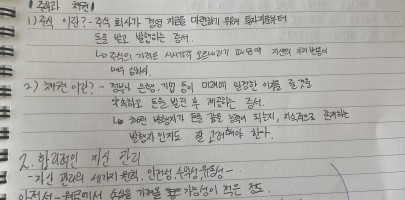 주식과 채권
1) 주식 이란? - 주식 회사가 경영 자금을 마련하기 위하여 투자자로부터
돈을 받고 발행하는 증서.
↳ 주식의 가격은 시시각각 오르내리기 때문에 자산의 가치 변동이
매우 심하다.
2) 채권 이란? - 정부나 은행, 기업 등이 미래에 일정한 이자를 줄 것을
약속하고 돈을 빌린 후 제공하는 증서.
↳ 채권 발행자가 돈을 갚을 능력이 되는지, 지속적으로 존재하는
발행자 인지도 잘 고려해야 한다.
2. 합리적인 자산 관리
- 자산 관리의 세가지 원칙, 안전성, 수익성, 유동성 -
안전성 - 원금에서 손실을 가져올 가능성이 적은 정도